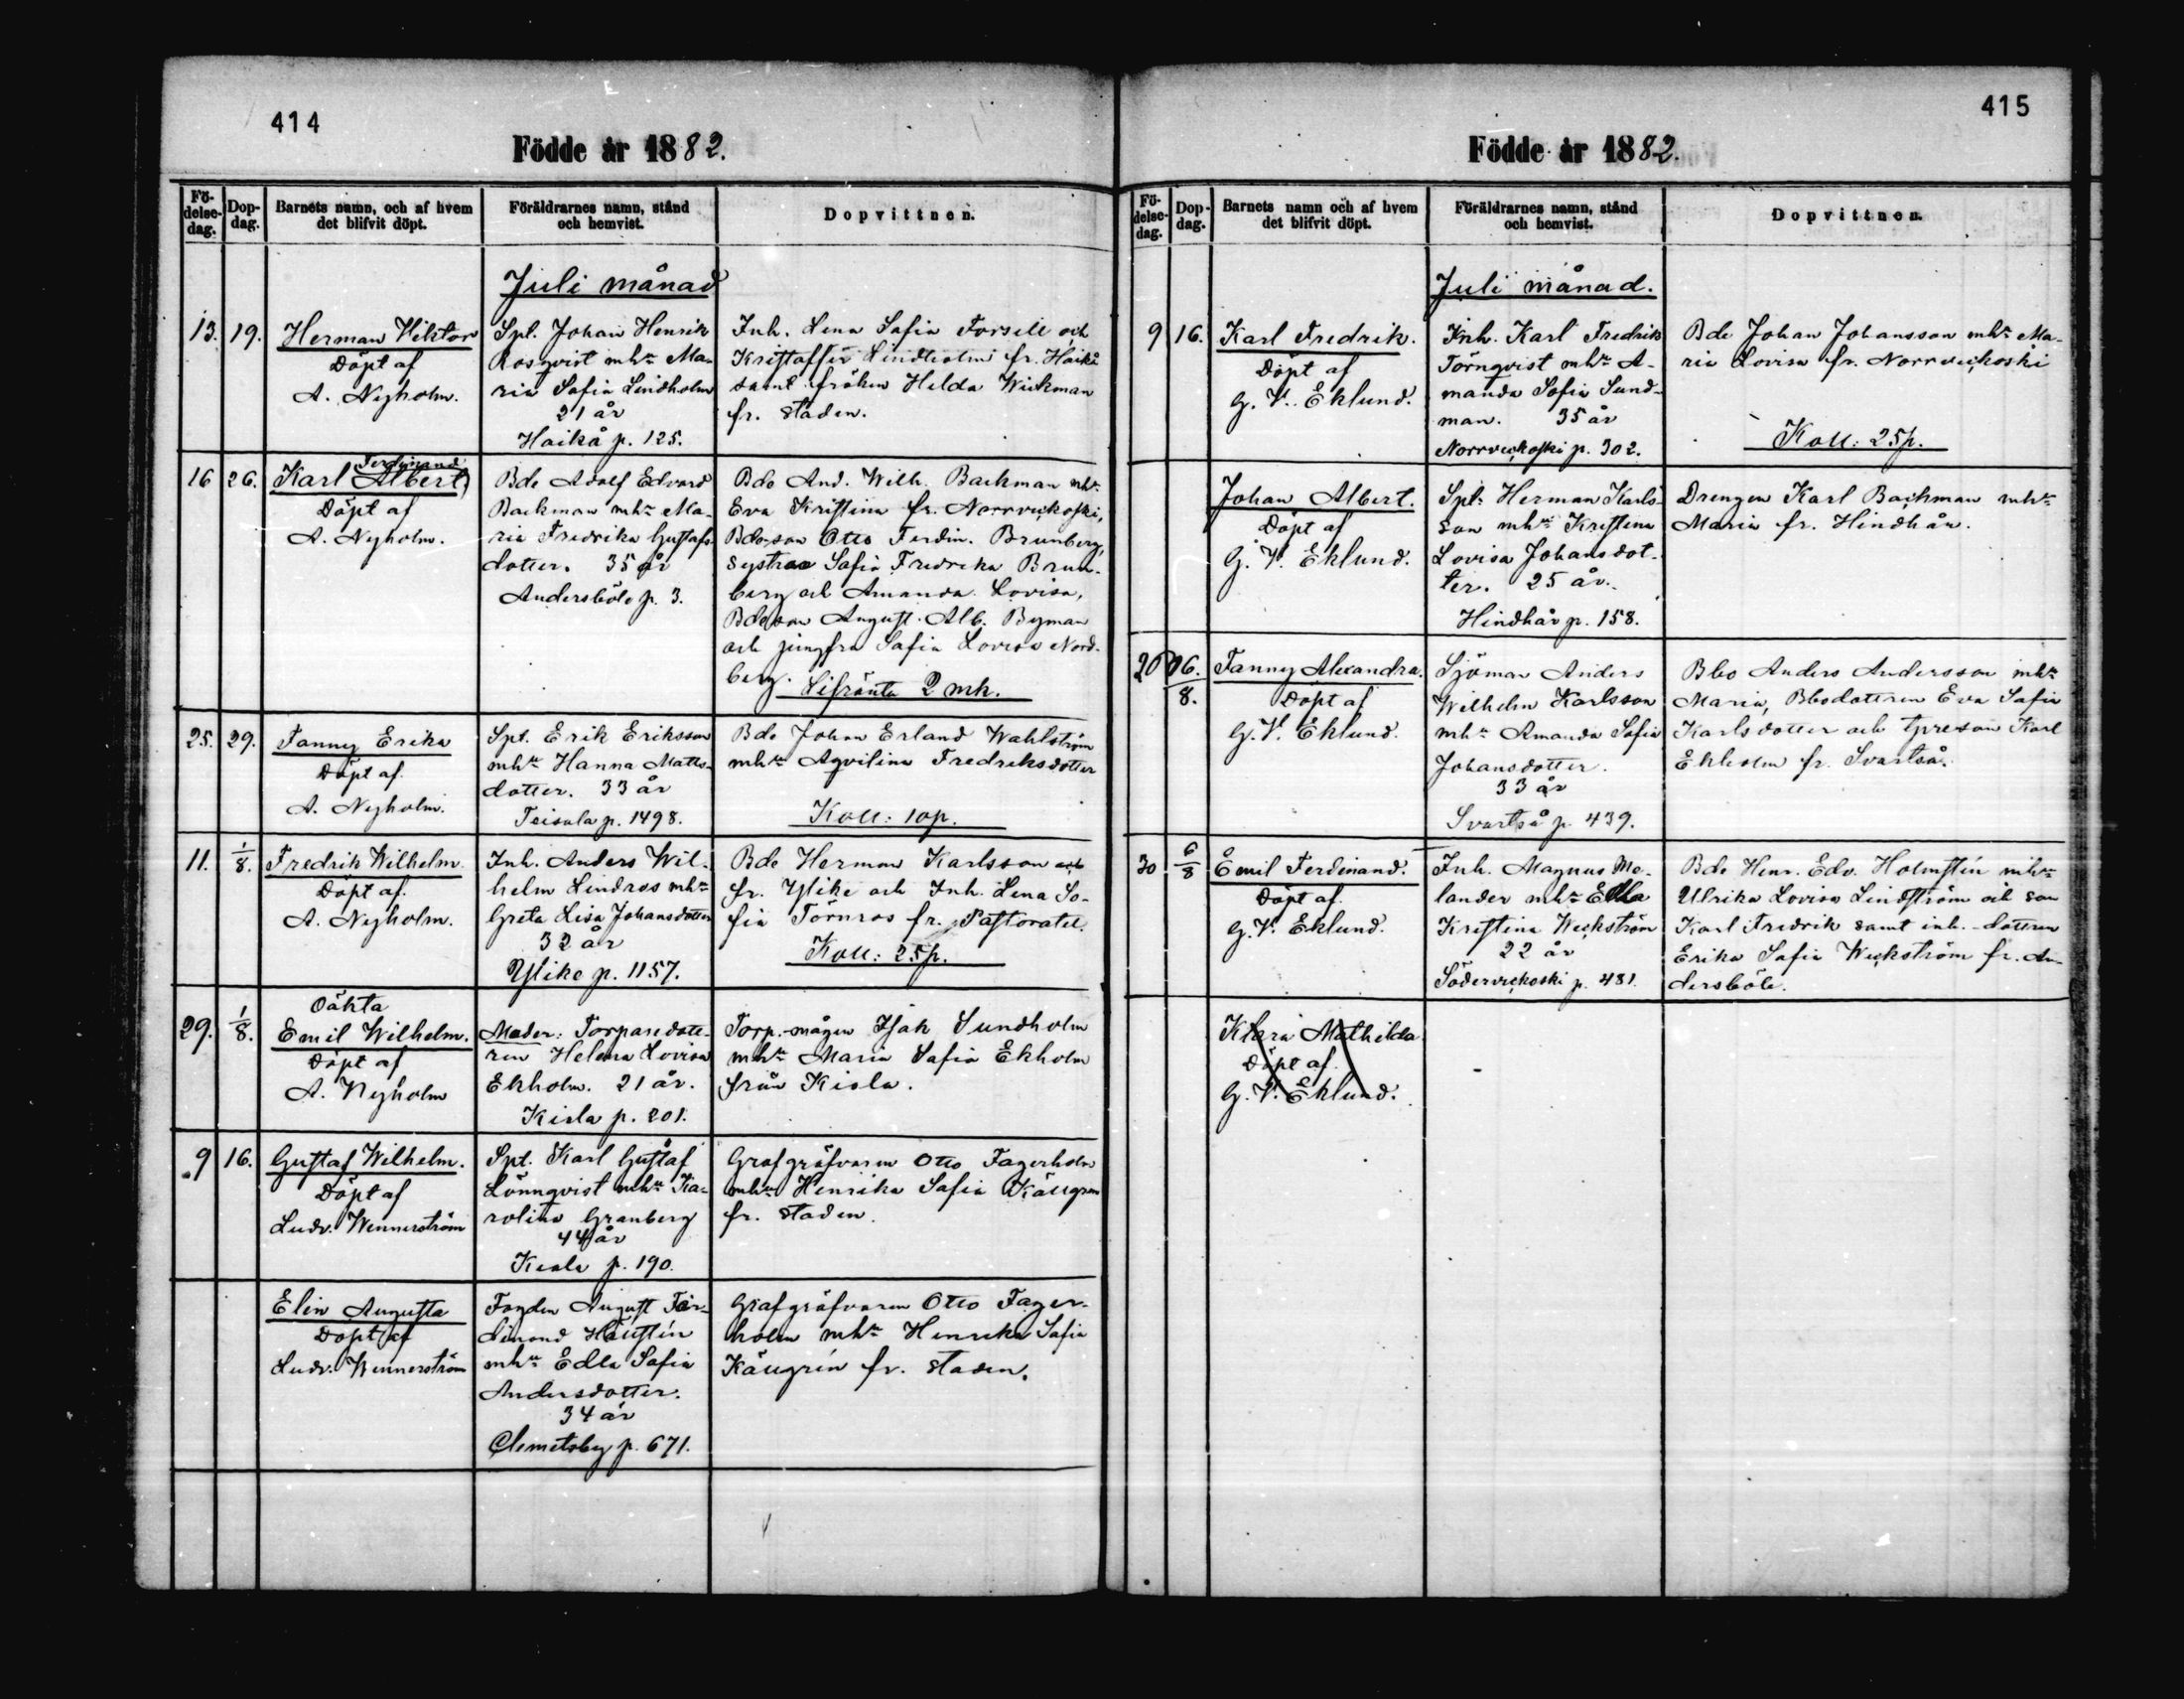 414
Födde år 1882.
Fö-
delse-
dag.
Dop-
dag.
Barnets namn, och af hvem
det blifvit döpt.
Föräldrarnes namn, stånd
och hemvist.
Dopvittnen.
Juli månad
13.
19.
Herman Wiktor
Döpt af
A. Nyholm.
Spt. Johan Henrik
Rosqvist mhu Ma-
ria Safia Lindholm
21 år
Haikå p. 125.
Inh. Lena Safia Forsell och
Kristaffer Lindholm fr. Haikå
samt fröken Hilda Wickman
fr. staden.
16
26.
Ferdinand
Karl Albert
Döpt af
A. Nyholm.
Bde Adolf Edvard
Backman mhu Ma-
ria Fredrika Gustafs-
dotter. 35 år
Andersböle p. 3.
Bde And. Wilh. Backman mhu
Eva Kristina fr. Norrveckoski,
Bde-son Otto Ferdin. Brunberg,
Safia Fredrika Brun-
berg och Amanda Lovisa,
Bdeson August Alb. Byman
och jungfru Safia Lovisa Nord-
berg. Lifränta 2 mk.
25.
29.
Fanny Erika
Döpt af.
A. Nyholm.
Spt. Erik Eriksson
mhu Hanna Matts-
dotter. 33 år
Teisala p. 1498.
Bde Johan Erland Wahlström
mhu Aqvilina Fredriksdotter
Koll: 10p.
11.
1/8.
Fredrik Wilhelm.
Döpt af.
A. Nyholm.
Inh. Anders Wil-
helm Lindros mhu
Greta Lisa Johansdotter
32 år
Ylike p. 1157.
Bde Herman Karlsson och
fr. Ylike och Inh. Lena So-
fia Törnros fr. Pastoratet.
Koll: 25p.
29.
1/8.
Oäkta
Emil Wilhelm.
Döpt af
A. Nyholm
Moder: Torparedott-
ren Helena Lovisa
Ekholm. 21 år.
Kiala p. 201.
Torp.-mågen Isak Sundholm
mhu Maria Safia Ekholm
från Kiala.
9
16.
Gustaf Wilhelm.
Döpt af
Ludv. Wennerström
Spt. Karl Gustaf
Lönnqvist mhu Ka-
rolina Granberg
44 år
Kiala p. 190.
Grafgräfvaren Otto Fagerholm
mhu Henrika Safia Källgren
fr. staden.
Elin Augusta
Döpt af
Ludv. Wennerström
Fogden August Fer-
dinand
mhu Edla Safia
Andersdotter.
34 år
Clemetsby p. 671.
Grafgräfvaren Otto Fager-
holm mhu Henrika Safia
Källgrén fr. staden.
415
Födde år 1882.
Fö-
delse-
dag.
Dop-
dag.
Barnets namn och af hvem
det blifvit döpt.
Föräldrarnes namn, stånd
och hemvist.
Dopvittnen.
Juli månad.
9
16.
Karl Fredrik.
Döpt af
G. V. Eklund.
Inh. Karl Fredrik
Törnqvist mhu A-
manda Sofia Sund-
man. 35 år
Norrveckoski p. 302.
Bde Johan Johansson mhu Ma-
ria Lovisa fr. Norrveckoski
Koll: 25p.
Johan Albert.
Döpt af
G. V. Eklund.
Spt. Herman Karls-
son mhu Kristina
Lovisa Johansdot-
ter. 25 år.
Hindhår p. 158.
Drengen Karl Backman mhu
Maria fr. Hindhår.
20
06.
8.
Fanny Alexandra.
Döpt af
G. V. Eklund.
Sjöman Anders
Wilhelm Karlsson
mhu Amanda Sofia
Johansdotter.
33 år
Svartså p. 439.
Bbo Anders Andersson mhu
Maria, Bbodottren Eva Safia
Karlsdotter och Karl
Ekholm fr. Svartså.
30
6/8
Emil Ferdinand.
Döpt af.
G. V. Eklund.
Inh. Magnus Me-
lander mhu Edla
Kristina Weckström
22 år
Söderveckoski p. 481.
Bde Henr. Edv. Holmstén mhu
Ulrika Lovisa Lindström och son
Karl Fredrik samt inh.-dottren
Erika Safia Weckström fr. An-
dersböle.
Klara Mathilda
Döpt af.
G. V. Eklund.